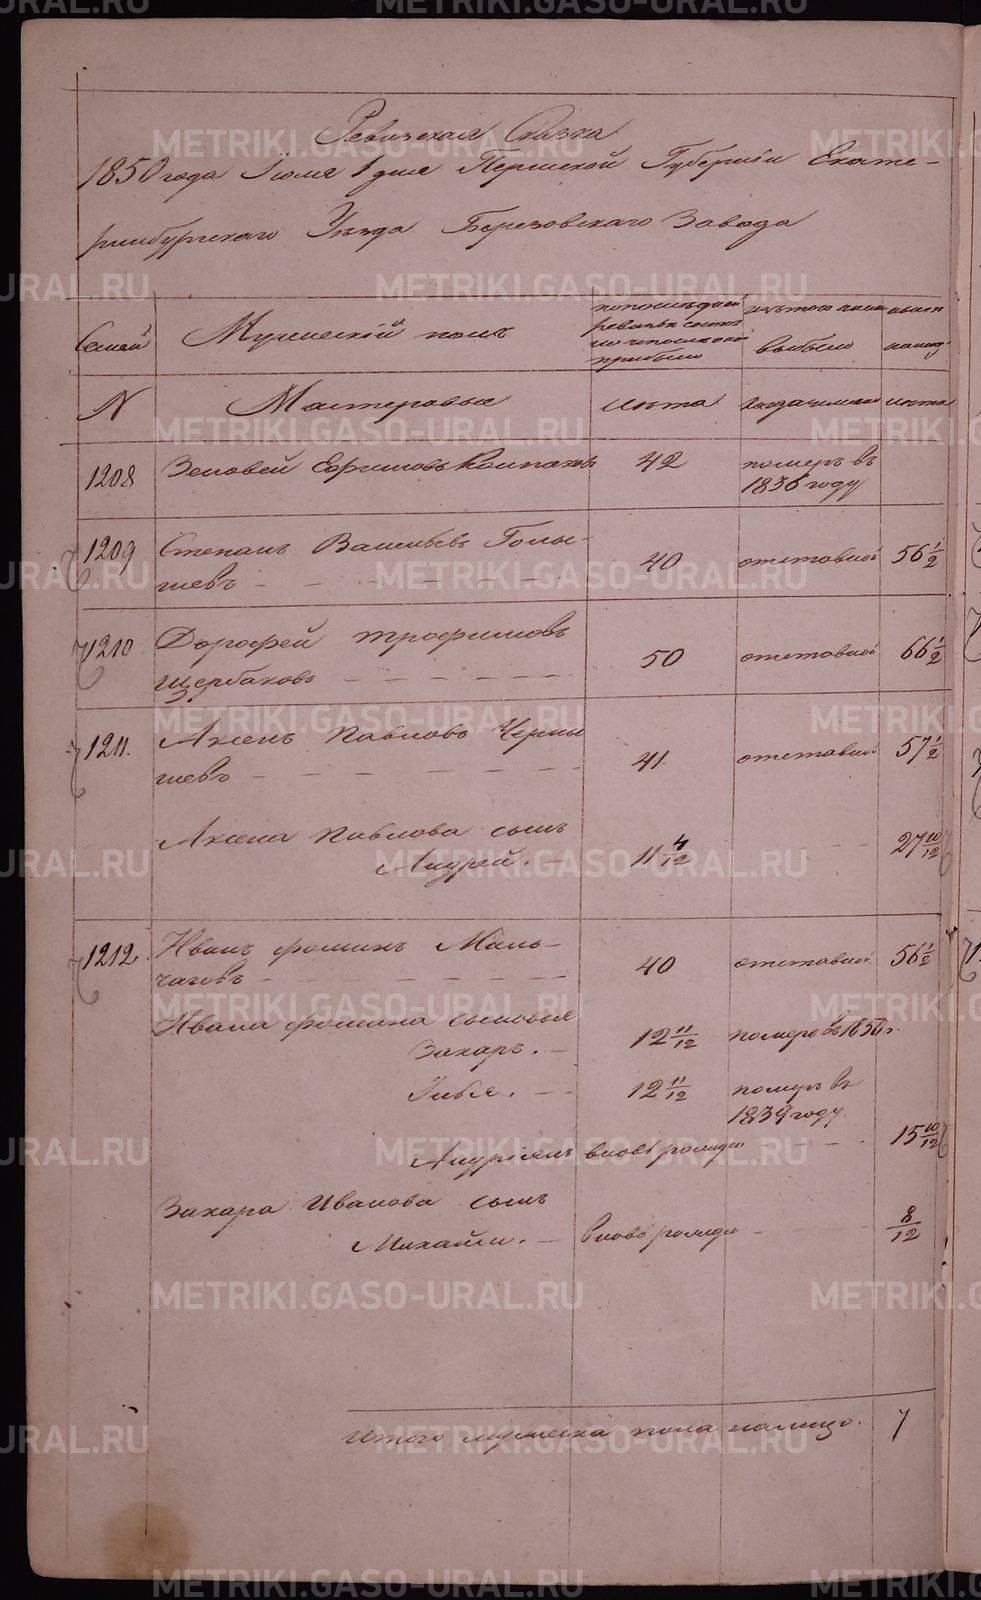 Ревизская Сказка
1850 года Іюля 1 дня Пермской Губерніи Екате-
ринбургскаго Уезда Березовскаго Завода
Семей
Мужескій полъ
по последней
ревизіи состо
яло и после оной
прибыло
изъ того числа
выбыло
ныне
налицо
N
Мастеровые
Лета
когда именно
Лета
1208
Зеновей Ефимовъ Колпаковъ
42
померъ въ
1836 году
1209
Степанъ Васильевъ Голы-
шевъ
40
отставной
56 1/2
1210
Дорофей Трофимовъ
Щербаковъ
50
отставной
66 1/2
1211.
Аксенъ Павловъ Черны
шевъ
41
отставной
57 1/2
Аксена Павлова сынъ
Андрей.
11 4/12
27 10/12
1212.
Иванъ Фоминъ Маль-
чаговъ
40
отставной
56 1/2
Ивана Фомина сыновья
Захаръ.
12 11/12
померъ въ 1850 г.
Илья.
12 11/12
померъ въ
1839 году
Андріянъ вновь рожден
15 10/12
Захара Иванова сынъ
Михайли. вновь рожден
8/12
Итого мужеска пола налицо.
7
METRIKI.GASO-URAL.RU